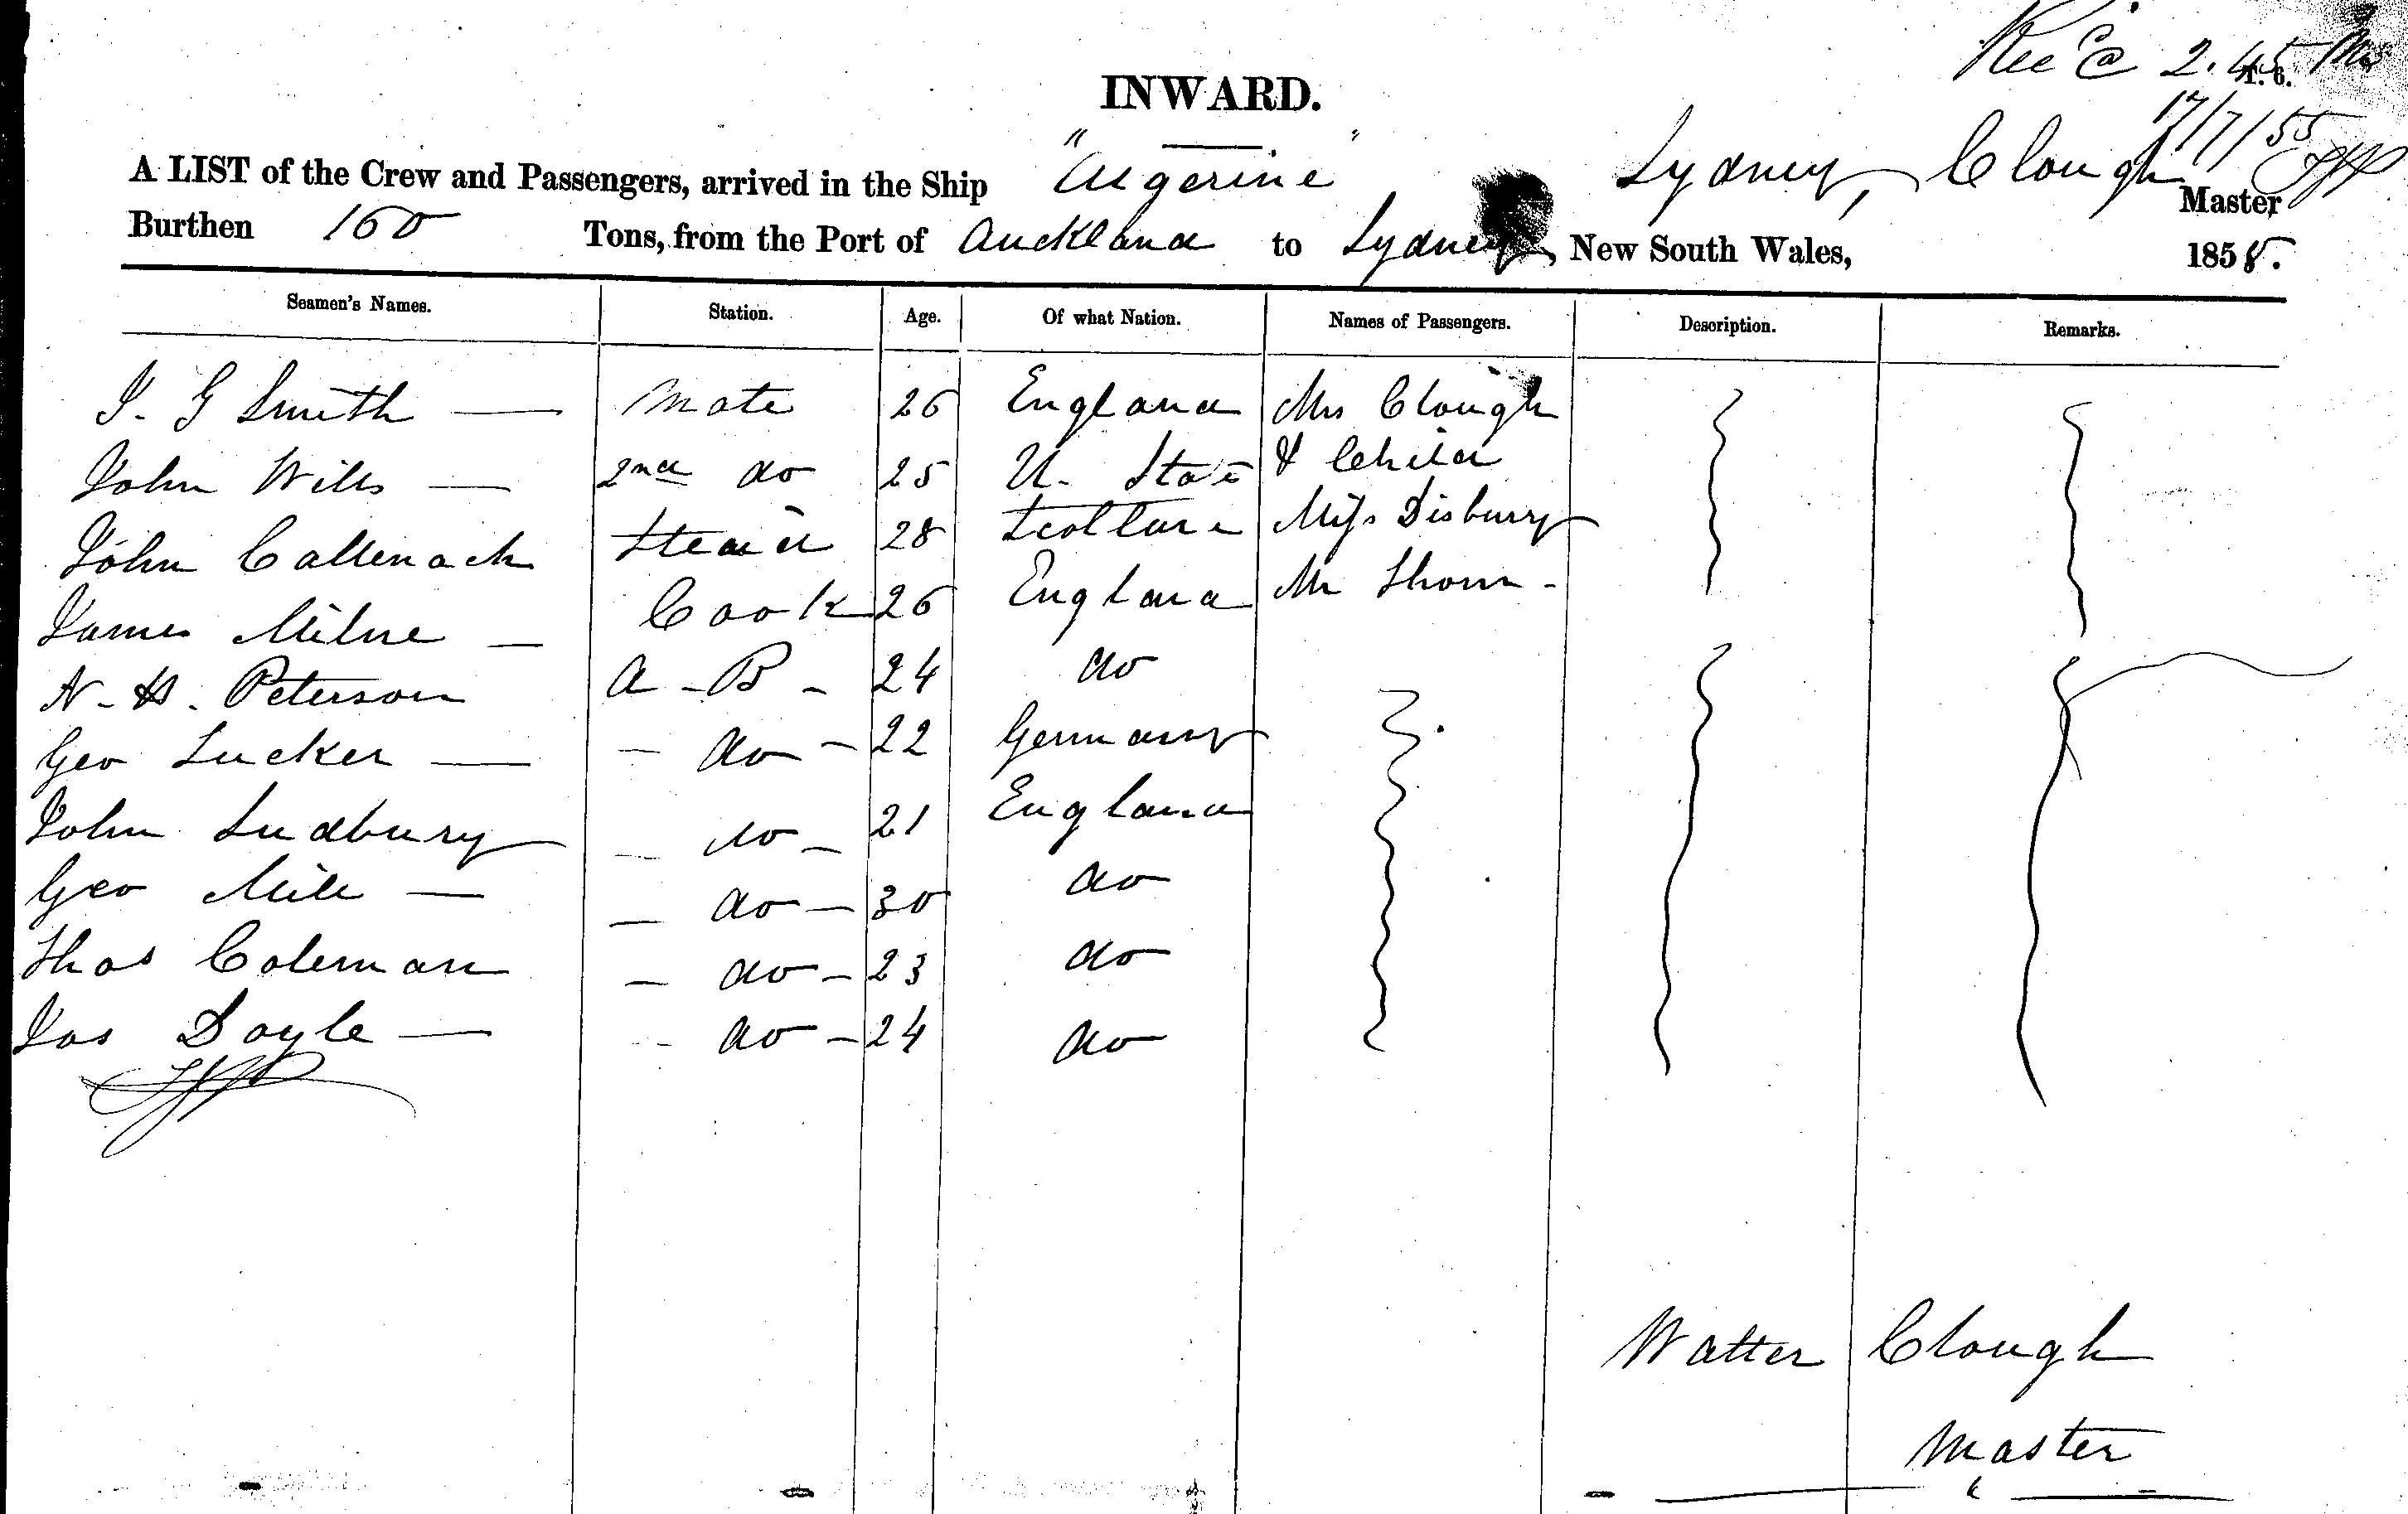 Rec'd @ 2.45
T. 6.
17/7/55
INWARD.
A LIST of the Crew and Passengers, arrived in the Ship "Algerine" Sydney, Clough Master,
Burthen 160 Tons, from the Port of Auckland to Sydney, New South Wales, 1858.
Seamen's Names. Station. Age. Of what Nation. Names of Passengers. Description. Remarks.
J. G Smith — Mate 26 England Mrs Clough
John Wills — 2nd do 25 U. State & Child
John Callenach Steward 28 Scotland Miss Disbury
James Milne — Cook 26 England Mr Thom -
N. H. Peterson A - B - 24 do
Geo Lucker — - do - 22 Germany
John Sudbury - do - 21 England
Geo Mill — - do - 30 do
Thos Coleman - do - 23 do
Jas Doyle — - do - 24 do
Walter Clough
Master